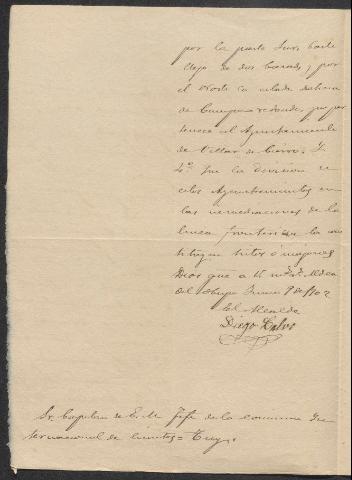 por la parte Sur, Corte
de dos Casas, y por
el Norte la
de Campo redondo, que per
tenece al Ayuntamiento
de Villar de Ciervo. Y
4º que la division
Ayuntamientos en
las inmediaciones de la
linea fronteriza la cons
tituyen hitos ó mojones
Dios gue a V. mº. aº. Aldea
del Obispo Junio 9 de 1902
El Alcalde
Diego Calvo
Sr. Capitan de E. M. Jefe de la comision In
ternacional de limites = Tuy.